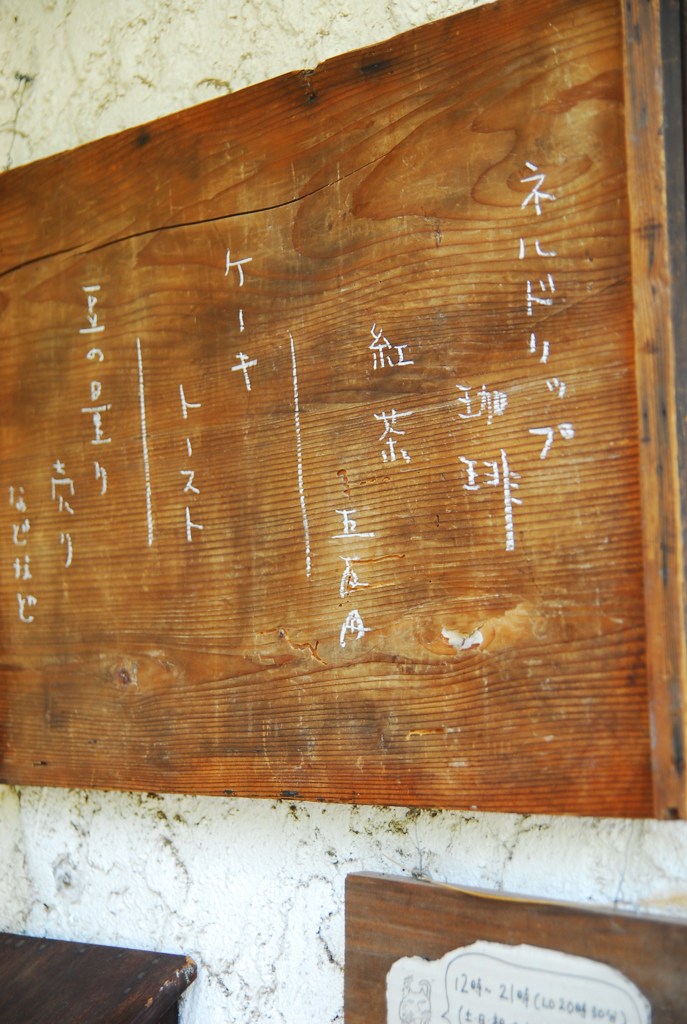 ネルドリップ
珈琲
紅茶
五百円
ケーキ
トースト
豆の量り
売り
などなど
12時~21時(LO20時30分)
(土・日・祝